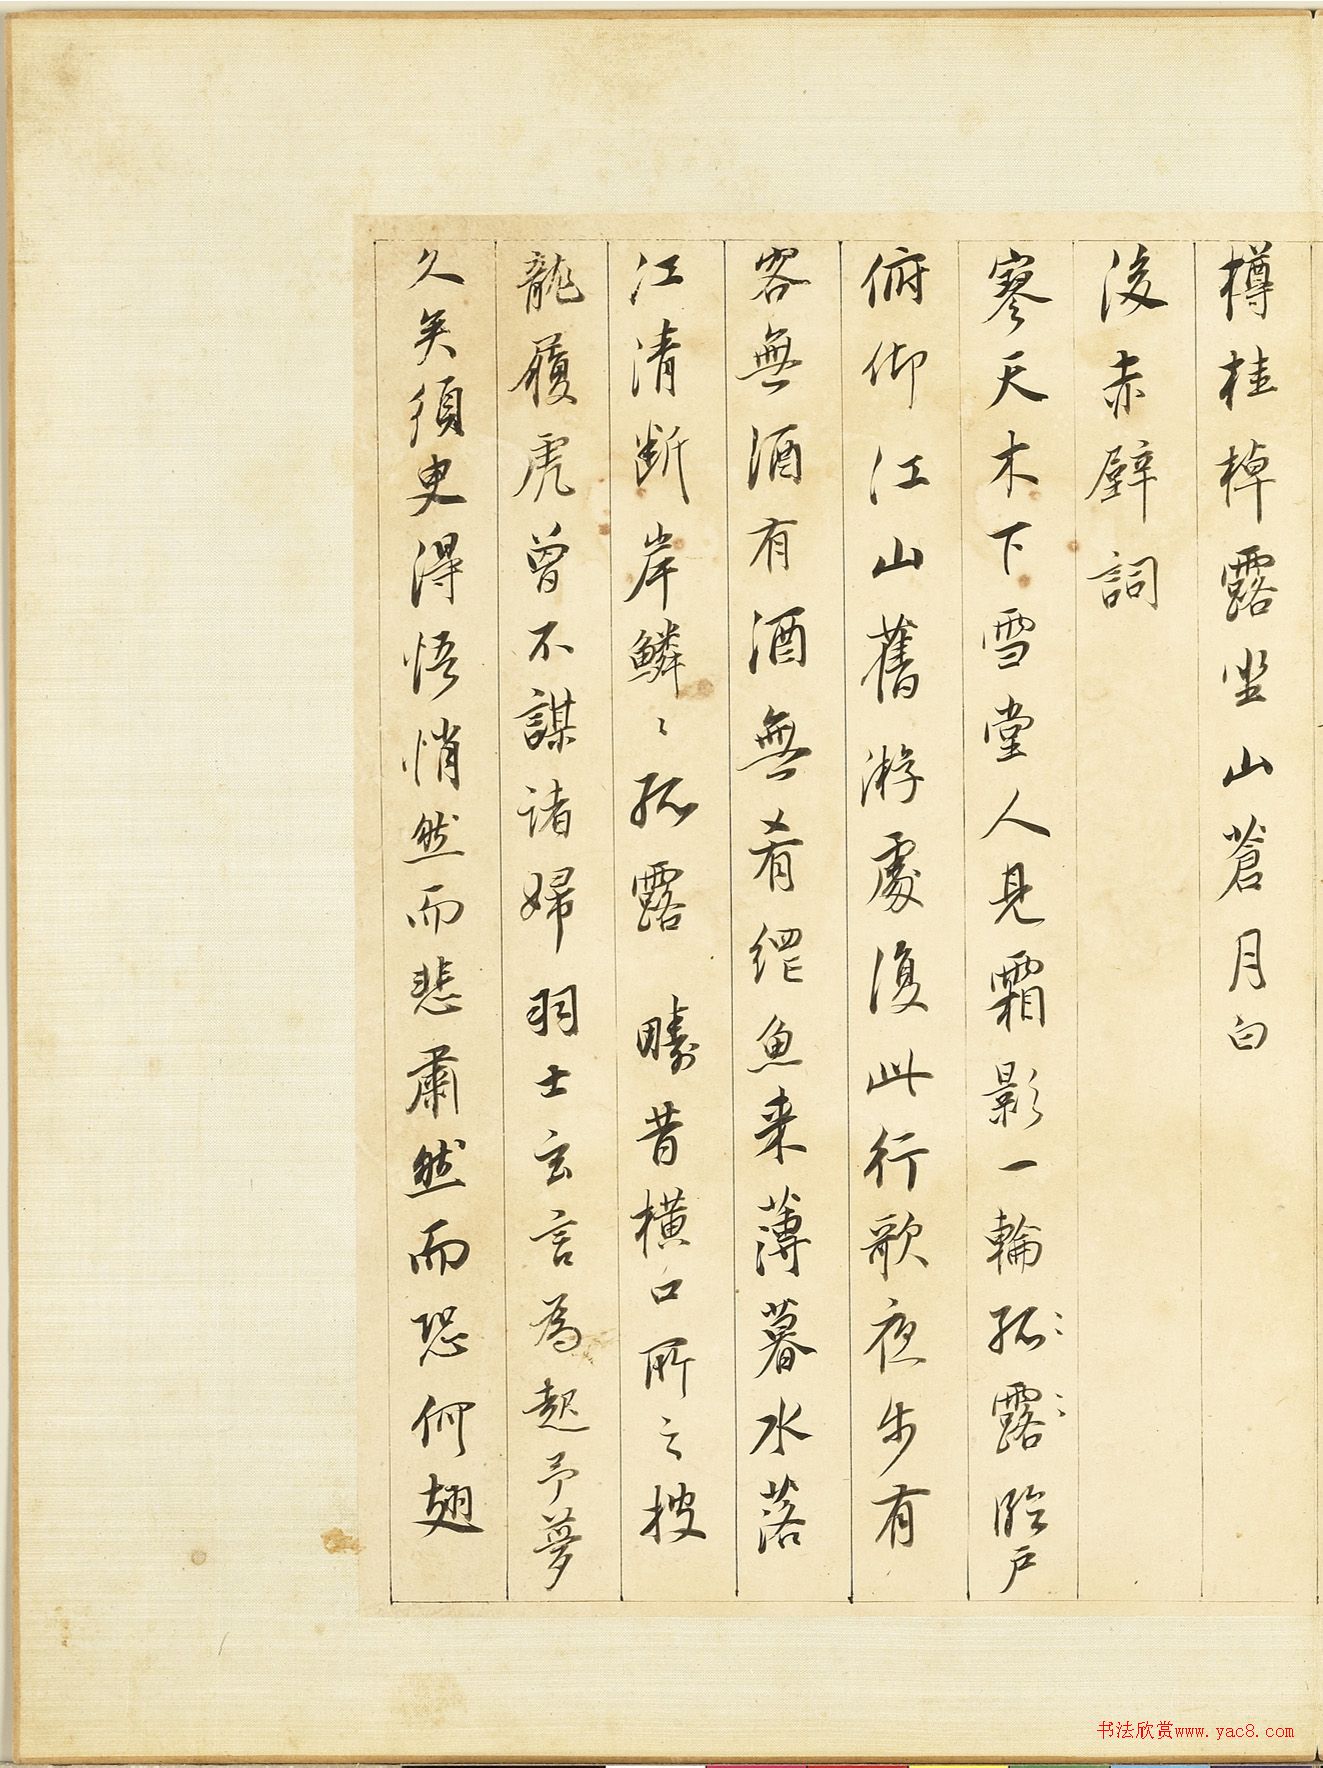 樽桂棹露坐山蒼月白
後赤壁詞
寥天木下雪堂人見霜影一輪孤露臨戶
俯仰江山舊游處復此行歌夜步有
客無酒有酒無肴網魚來薄暮水落
江清斷岸鱗〻孤露 疇昔橫口所之披
龍履虎曾不謀諸婦羽士玄言為起予夢
久矣須臾得悟悄然而悲肅然而恐何翅
书法欣赏www.yac8.com